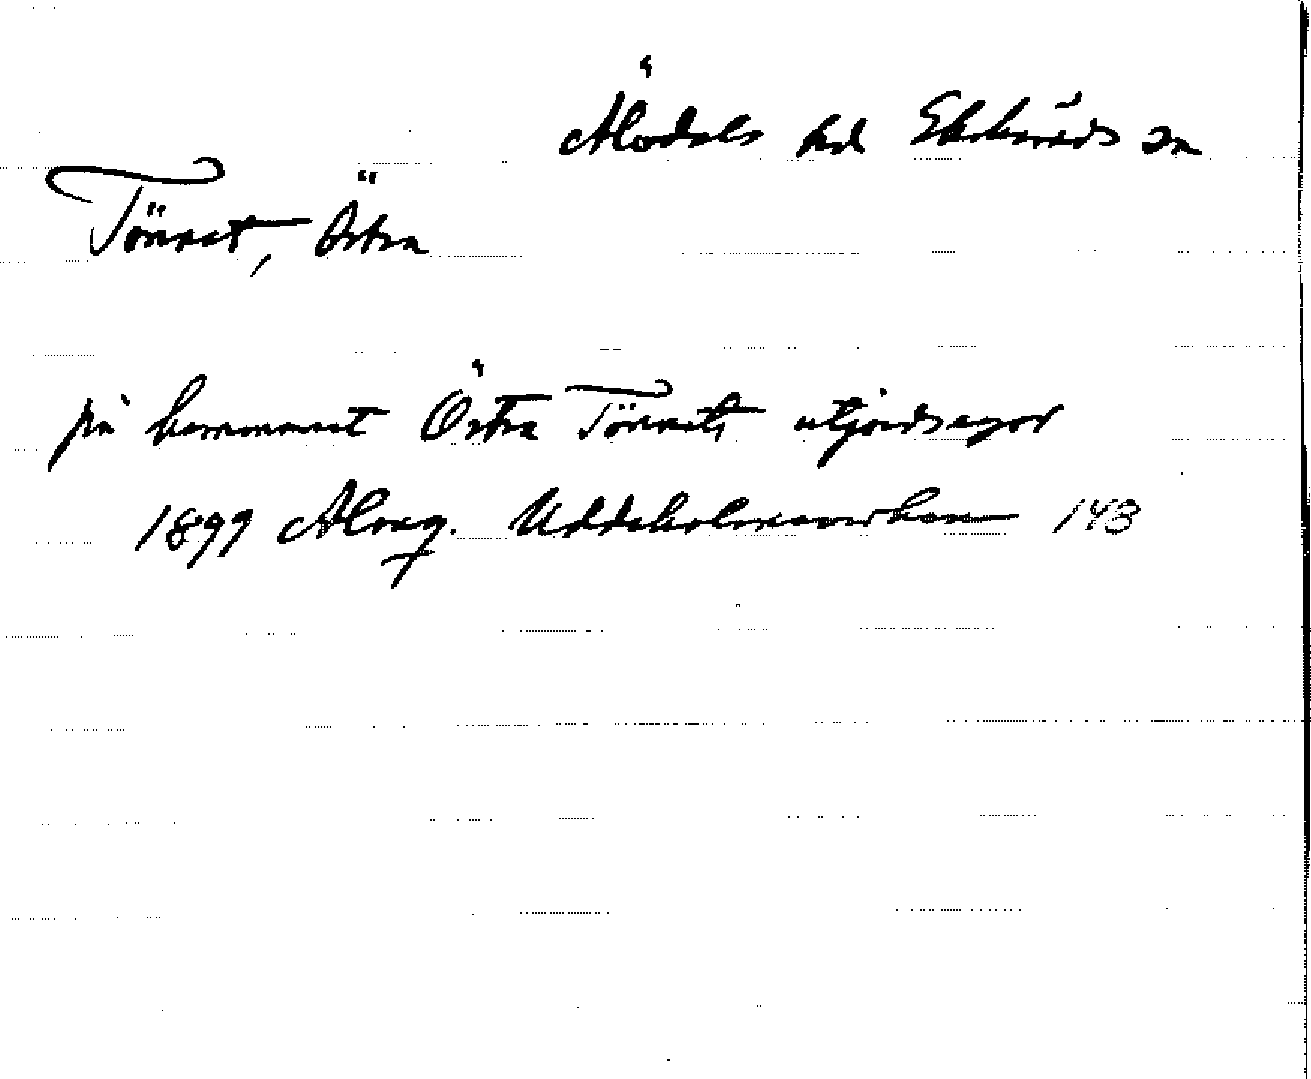 Älvdals hd Ekshärads sn
Tönnet, Östra
på hemmanet Östra Tönnets utjordsegor
1899 Almq. Uddeholmsverken 143